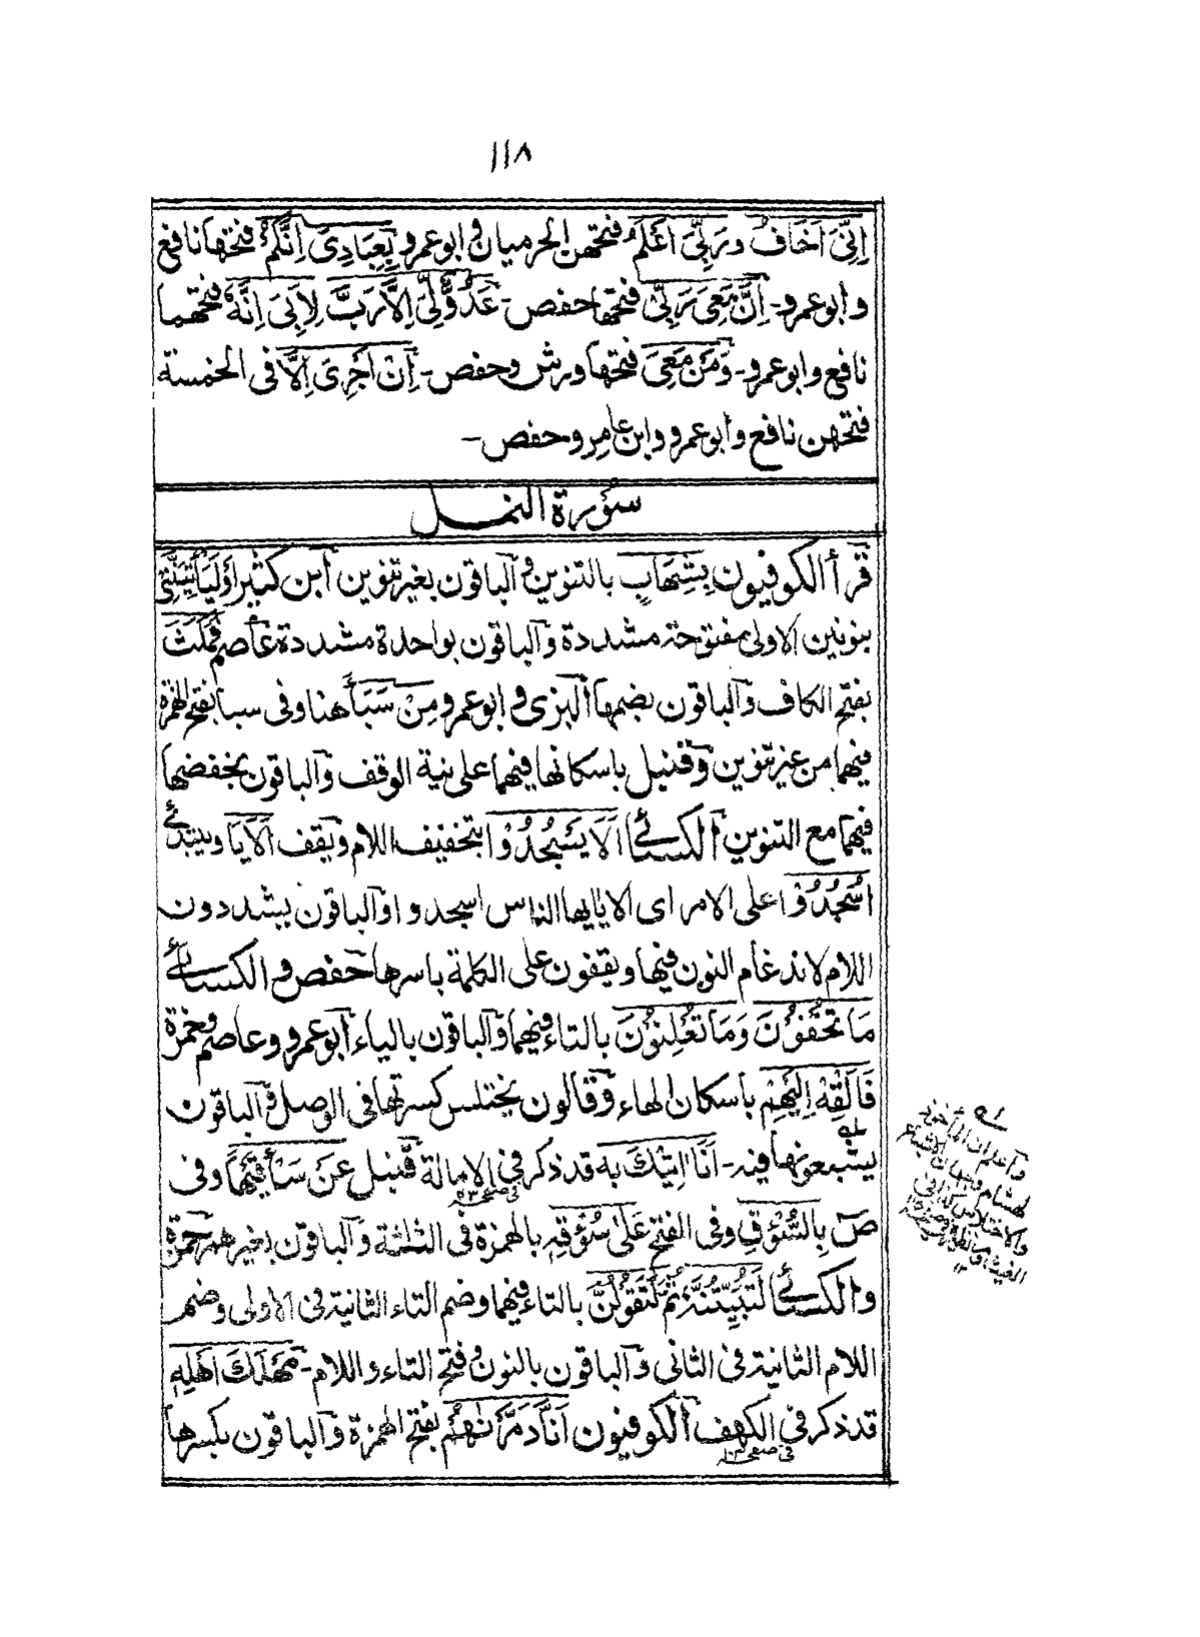 ١١٨
اِنِّىَ اَخَافُ ورَبِّىَ اَعْلَمُ فتحهن الحرميان وابو عمرو بِعِبَادِىَ اِنَّكُمْ فتحها نافع
وابو عمرو - اِنَّ مَعِىَ رَبِّى فتحها حفص - عَدُوٌّ لِّىَ اِلَّا رَبَّ لِاَبِىَ اِنَّهٗ فتحهما
نافع وابو عمرو - وَمَنْ مَعِىَ فتحها ورش وحفص - اِنْ اَجْرِىَ اِلَّا فى الخمسة
فتحهن نافع وابو عمرو وابن عامر وحفص -
سورة النمل
قرأ الكوفيون بِشِهَابٍ بالتنوين والباقون بغير تنوين ابن كثير اَوْلَيَأْتِيَنَّنِى
بنونين الاولى مفتوحة مشددة والباقون بواحدة مشددة عاصم فَمَكَثَ
بفتح الكاف والباقون بضمها البزى وابو عمرو مِنْ سَبَأَ هنا وفى سبا بفتح الهمزة
فيهما من غير تنوين وقنبل باسكانها فيهما على نية الوقف والباقون بخفضها
فيهما مع التنوين الكسائى اَلَا يَسْجُدُوْا بتخفيف اللام ويقف اَلَايَا ويبتدئ
اُسْجُدُوْا على الامر اى الا يايها الناس اسجدوا والباقون يشددون
اللام لاندغام النون فيها ويقفون على الكلمة باسرها حفص والكسائى
مَا تُخْفُوْنَ وَمَا تُعْلِنُوْنَ بالتاء فيهما والباقون بالياء ابو عمرو وعاصم وحمزة
فَاَلْقِهْ اِلَيْهِمْ باسكان الهاء وقالون يختلس كسرتها فى الوصل والباقون
يشبعونها فيه - اَنَا اٰتِيْكَ به قد ذكر فى الامالة قنبل عَنْ سَأْقَيْهَا وفى
فى صفحه
صٓ بِالسُّؤْقِ وفى الفتح عَلٰى سُؤْقِهٖ بالهمزة فى الثلثة والباقون بغير همز حمزة
والكسائى لَتُبَيِّتُنَّهٗ ثُمَّ لَتَقُوْلُنَّ بالتاء فيهما وضم التاء الثانية فى الاولى وضم
اللام الثانية فى الثانى والباقون بالنون وفتح التاء واللام - مَهْلَكَ اَهْلِهٖ
قد ذكر فى الكهف الكوفيون اَنَّا دَمَّرْنٰهُمْ بفتح الهمزة والباقون بكسرها
فى صفحه